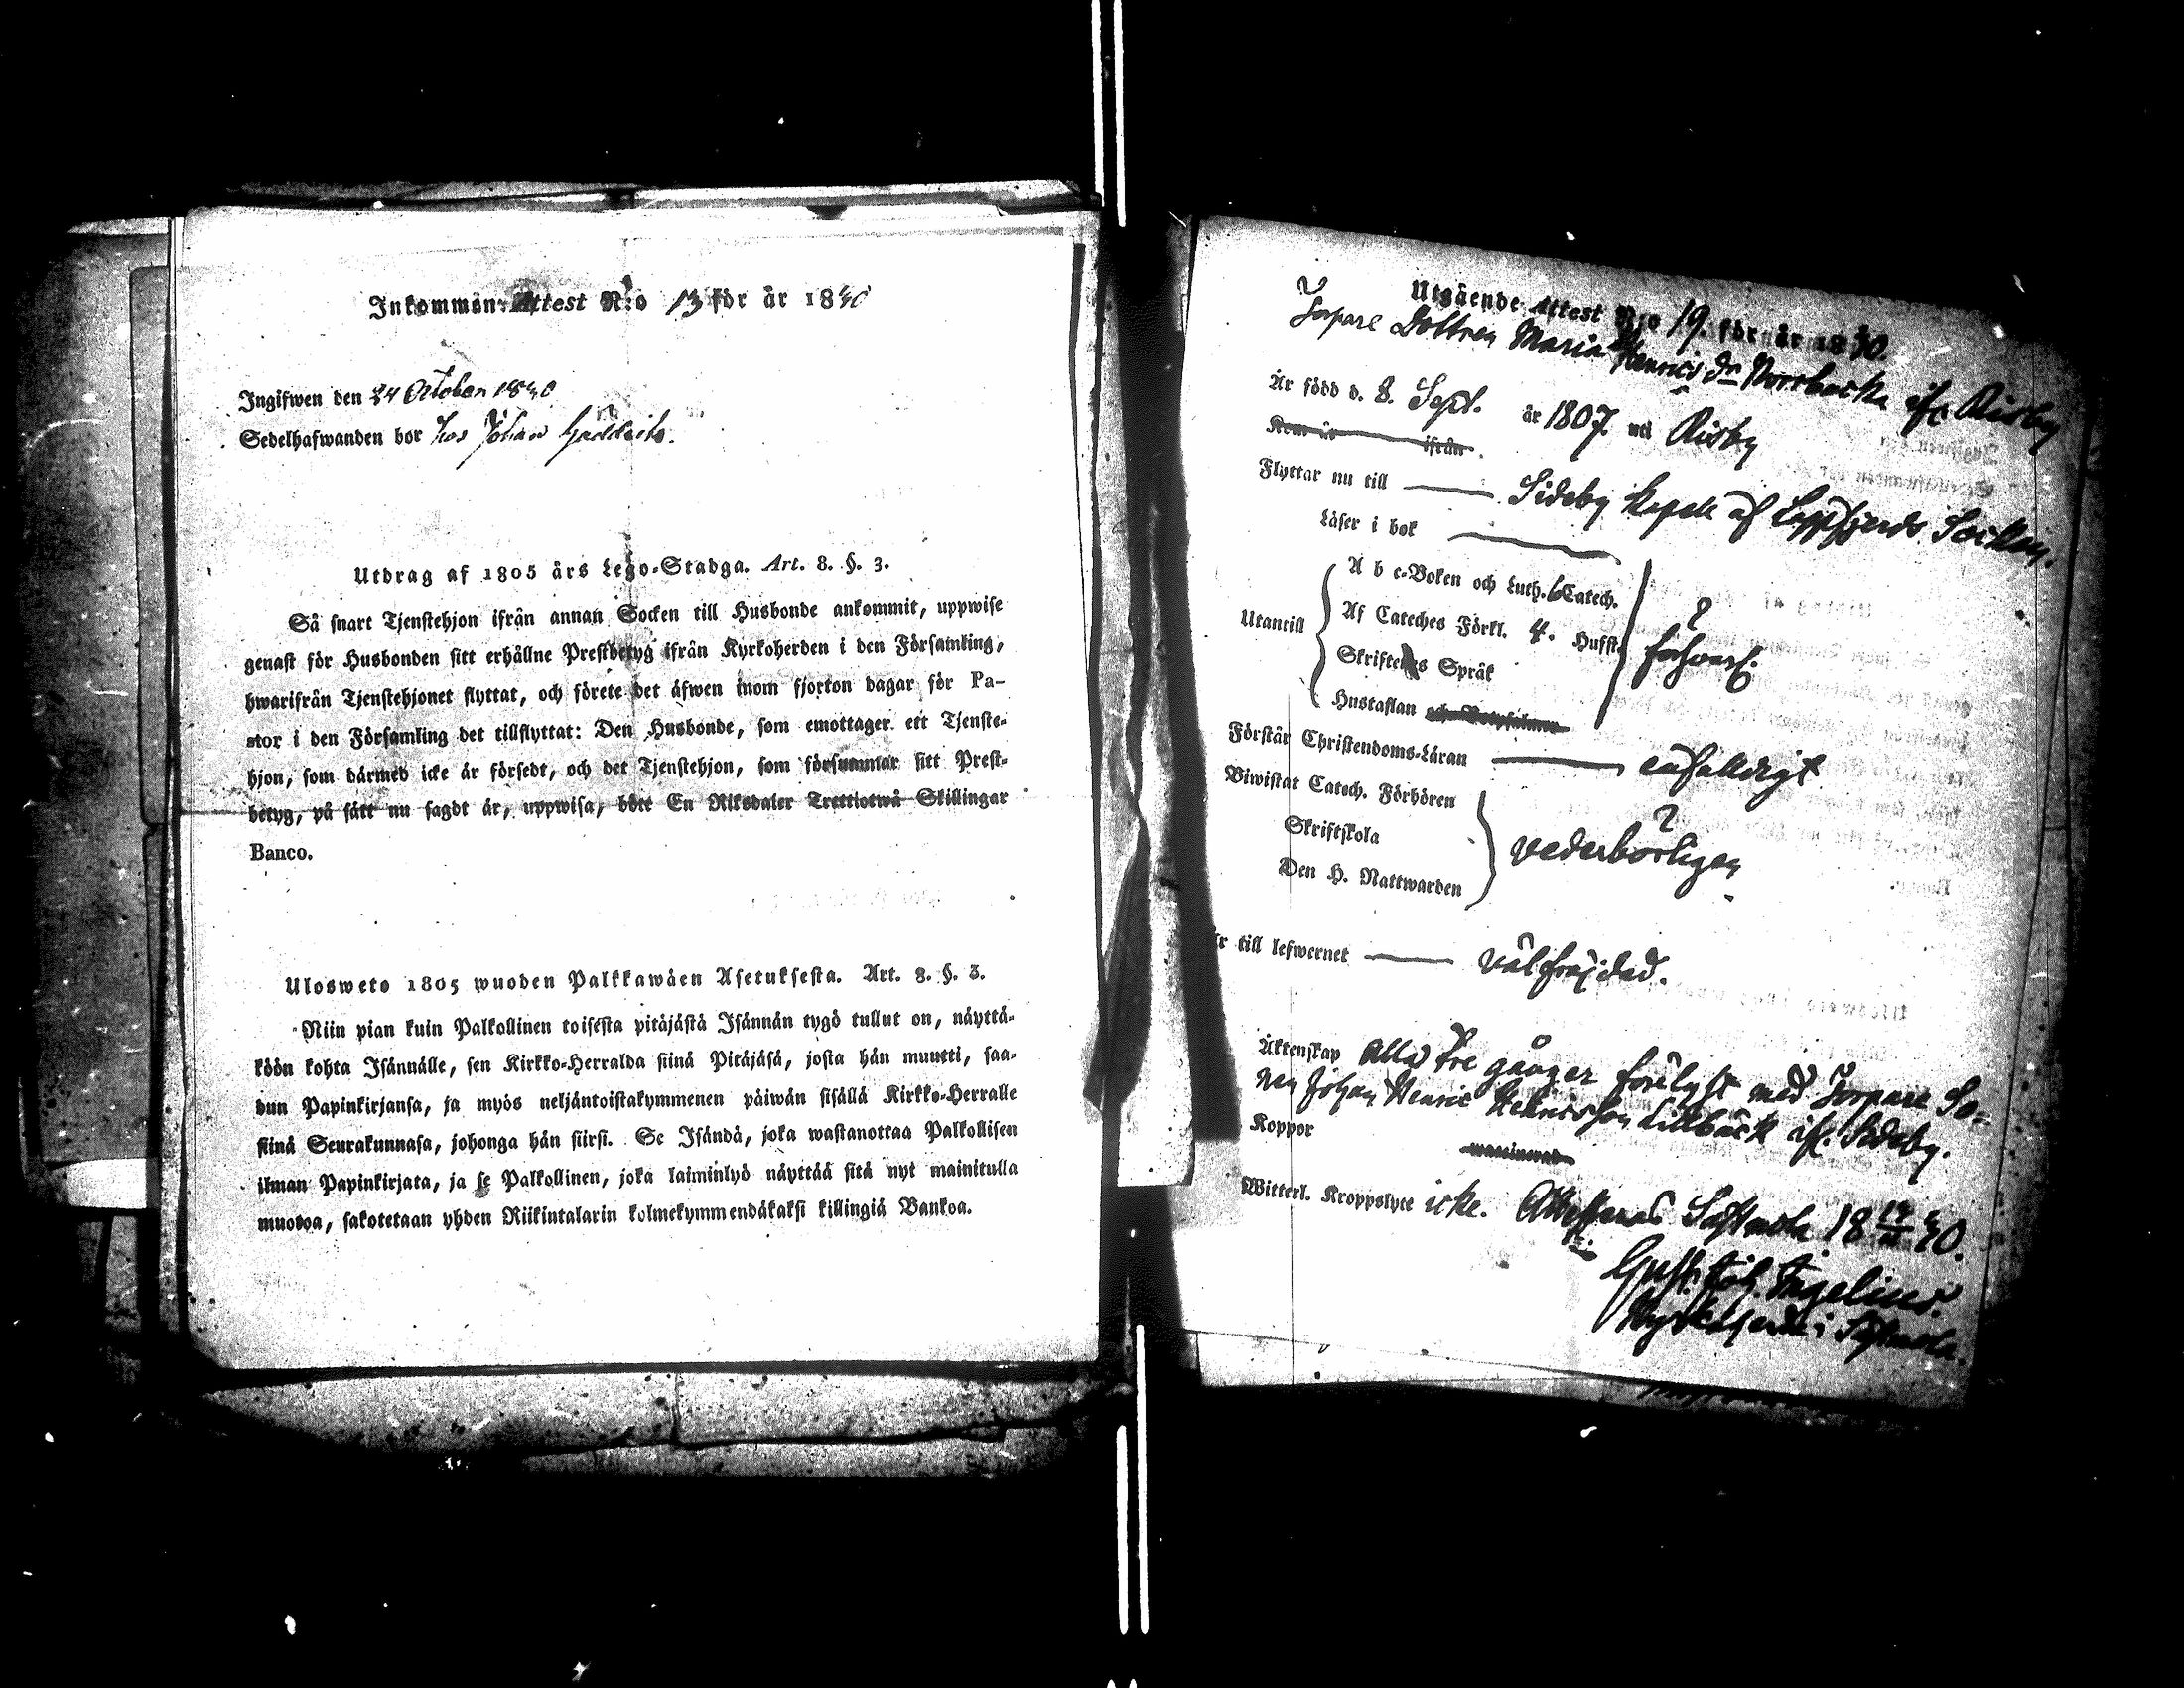 Inkommen: Attest N:o 13 för år 1840
Ingifwen den 24 October 1840
Sedelhafwanden bor hos Johan
Utdrag af 1805 års Lego-Stadga. Art. 8. §. 3.
Så snart Tjenstehjon ifrån annan Socken till Husbonde ankommit, uppwise
genast för Husbonden sitt erhållne Prestbetyg ifrån Kyrkoherden i den Församling,
hwarifrån Tjenstehjonet flyttat, och förete det äfwen inom fjorton dagar för Pa-
stor i den Församling det tillflyttat: Den Husbonde, som emottager ett Tjenste-
hjon, som därmed icke är försedt, och det Tjenstehjon, som försummar sitt Prest-
betyg, på sätt nu sagdt är, uppwisa, böte En Riksdaler Trettiotwå Skillingar
Banco.
Ulosweto 1805 wuoden Palkkawäen Asetuksesta. Art. 8. §. 3.
Niin pian kuin Palkollinen toisesta pitäjästä Isännän tygö tullut on, näyttä-
köön kohta Isännälle, sen Kirkko-Herralda siinä Pitäjäsä, josta hän muutti, saa-
dun Papinkirjansa, ja myös neljäntoistakymmenen päiwän sisällä Kirkko-Herralle
siinä Seurakunnasa, johonga hän siirsi. Se Isändä, joka wastanottaa Palkollisen
ilman Papinkirjata, ja se Palkollinen, joka laiminlyö näyttää sitä nyt mainitulla
muotoa, sakotetaan yhden Riikintalarin kolmekymmendäkaksi killingiä Bankoa.
Utgående Attest N:o 19. för år 1840.
Torpare Dottren Maria Henrics dr Norrbacka ifr. Risby
Är född d. 8. Sept. år 1807. uti Risby
Kom år ifrån
Flyttar nu till Sideby Capell af Lappfjerds Socken.
Läser i bok
Utantill
A b c-Boken och Luth. Catech.
Af Cateches Förkl. 4. Hufst.
Skriftenes Språk
Hustaflan
försvarl:
Förstår Christendoms-Läran enfalldigt
Biwistat Catech. Förhören
Skriftskola
Den H. Nattwarden
vederbörligen
Är till lefwernet välfräjdad.
Äktenskap Alla tre gånger förelyst med Torpare So-
nen Johan Henric Henricsson Lillbäck ifr. Sideby.
Koppor
waccinerad
Witterl. Kroppslyte icke. Attesteras Sastmola 18 40.
Gust. Joh. Ingelius.
Kyrkoherde i Sastmola.